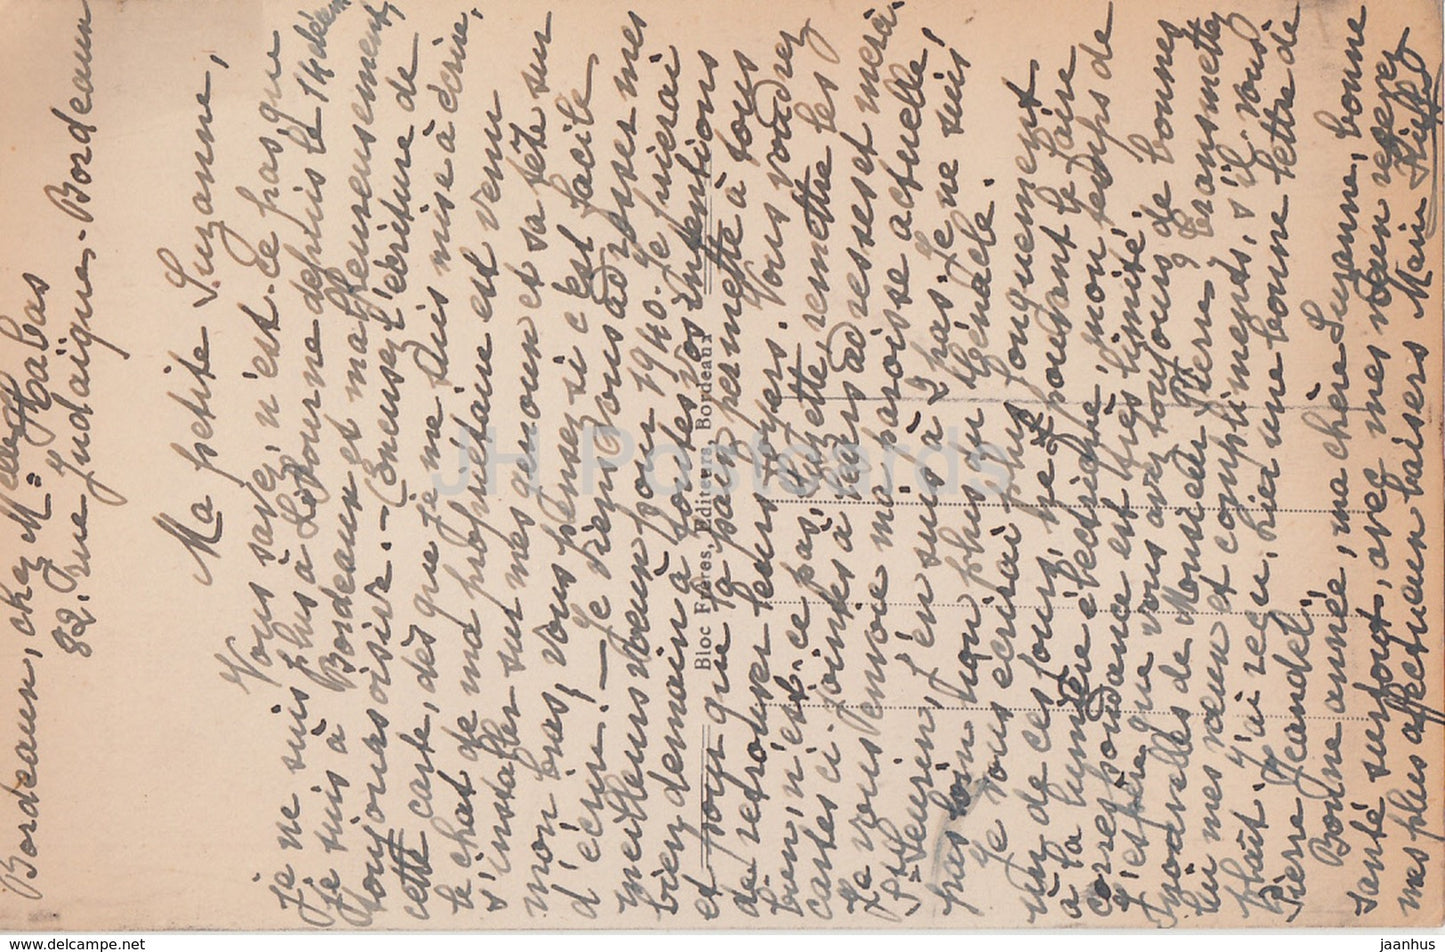 Bordeaux, chez Melle Habas
82. rue Judaïque. Bordeaux
Ma petite Suzanne,
Vous savez, n'est-ce pas que
je ne suis plus à Libourne depuis le 14 décem
Je suis à Bordeaux et malheureusement,
toujours oisive. - (Excusez l'écriture de
cette carte, dès que je me suis mise à écrire,
le chat de ma propriétaire est venu
s'installer sur mes genoux et sa tête sur
mon bras, vous pensez si c'est facile
d'écrire! - Je viens vous adresser mes
meilleurs voeux pour 1940. Je prierai
bien demain à toutes vos intentions
et pour que la paix permette à tous
de retrouver leurs foyers. Vous voudrez
bien, n'est-ce pas, Suzette, remettre les
cartes ci-jointes à leurs adresses et merci.
Je vous envoie ma paroisse actuelle,
St Seurin, j'en suis à 2 pas. Je ne suis
pas loin non plus du Générale.
Je vous écrirai plus longuement
un de ces jours, je ne pourrai le faire
à la lumière électrique, mon temps de
correspondance est très limité.
J'espère que vous avez toujours de bonnes
nouvelles de Monsieur Pierre, transmettez
lui mes voeux et compliments, s'il vous
plaît. J'ai reçu, hier une bonne lettre de
Pierre Jeandel.
Bonne année, ma chère Suzanne, bonne
santé surtout, avec mes voeux recevez
mes plus affectueux baisers Marie
Bloc Frères, Editeurs, Bordeaux
JH Postcards
www.delcampe.net
jaanhus